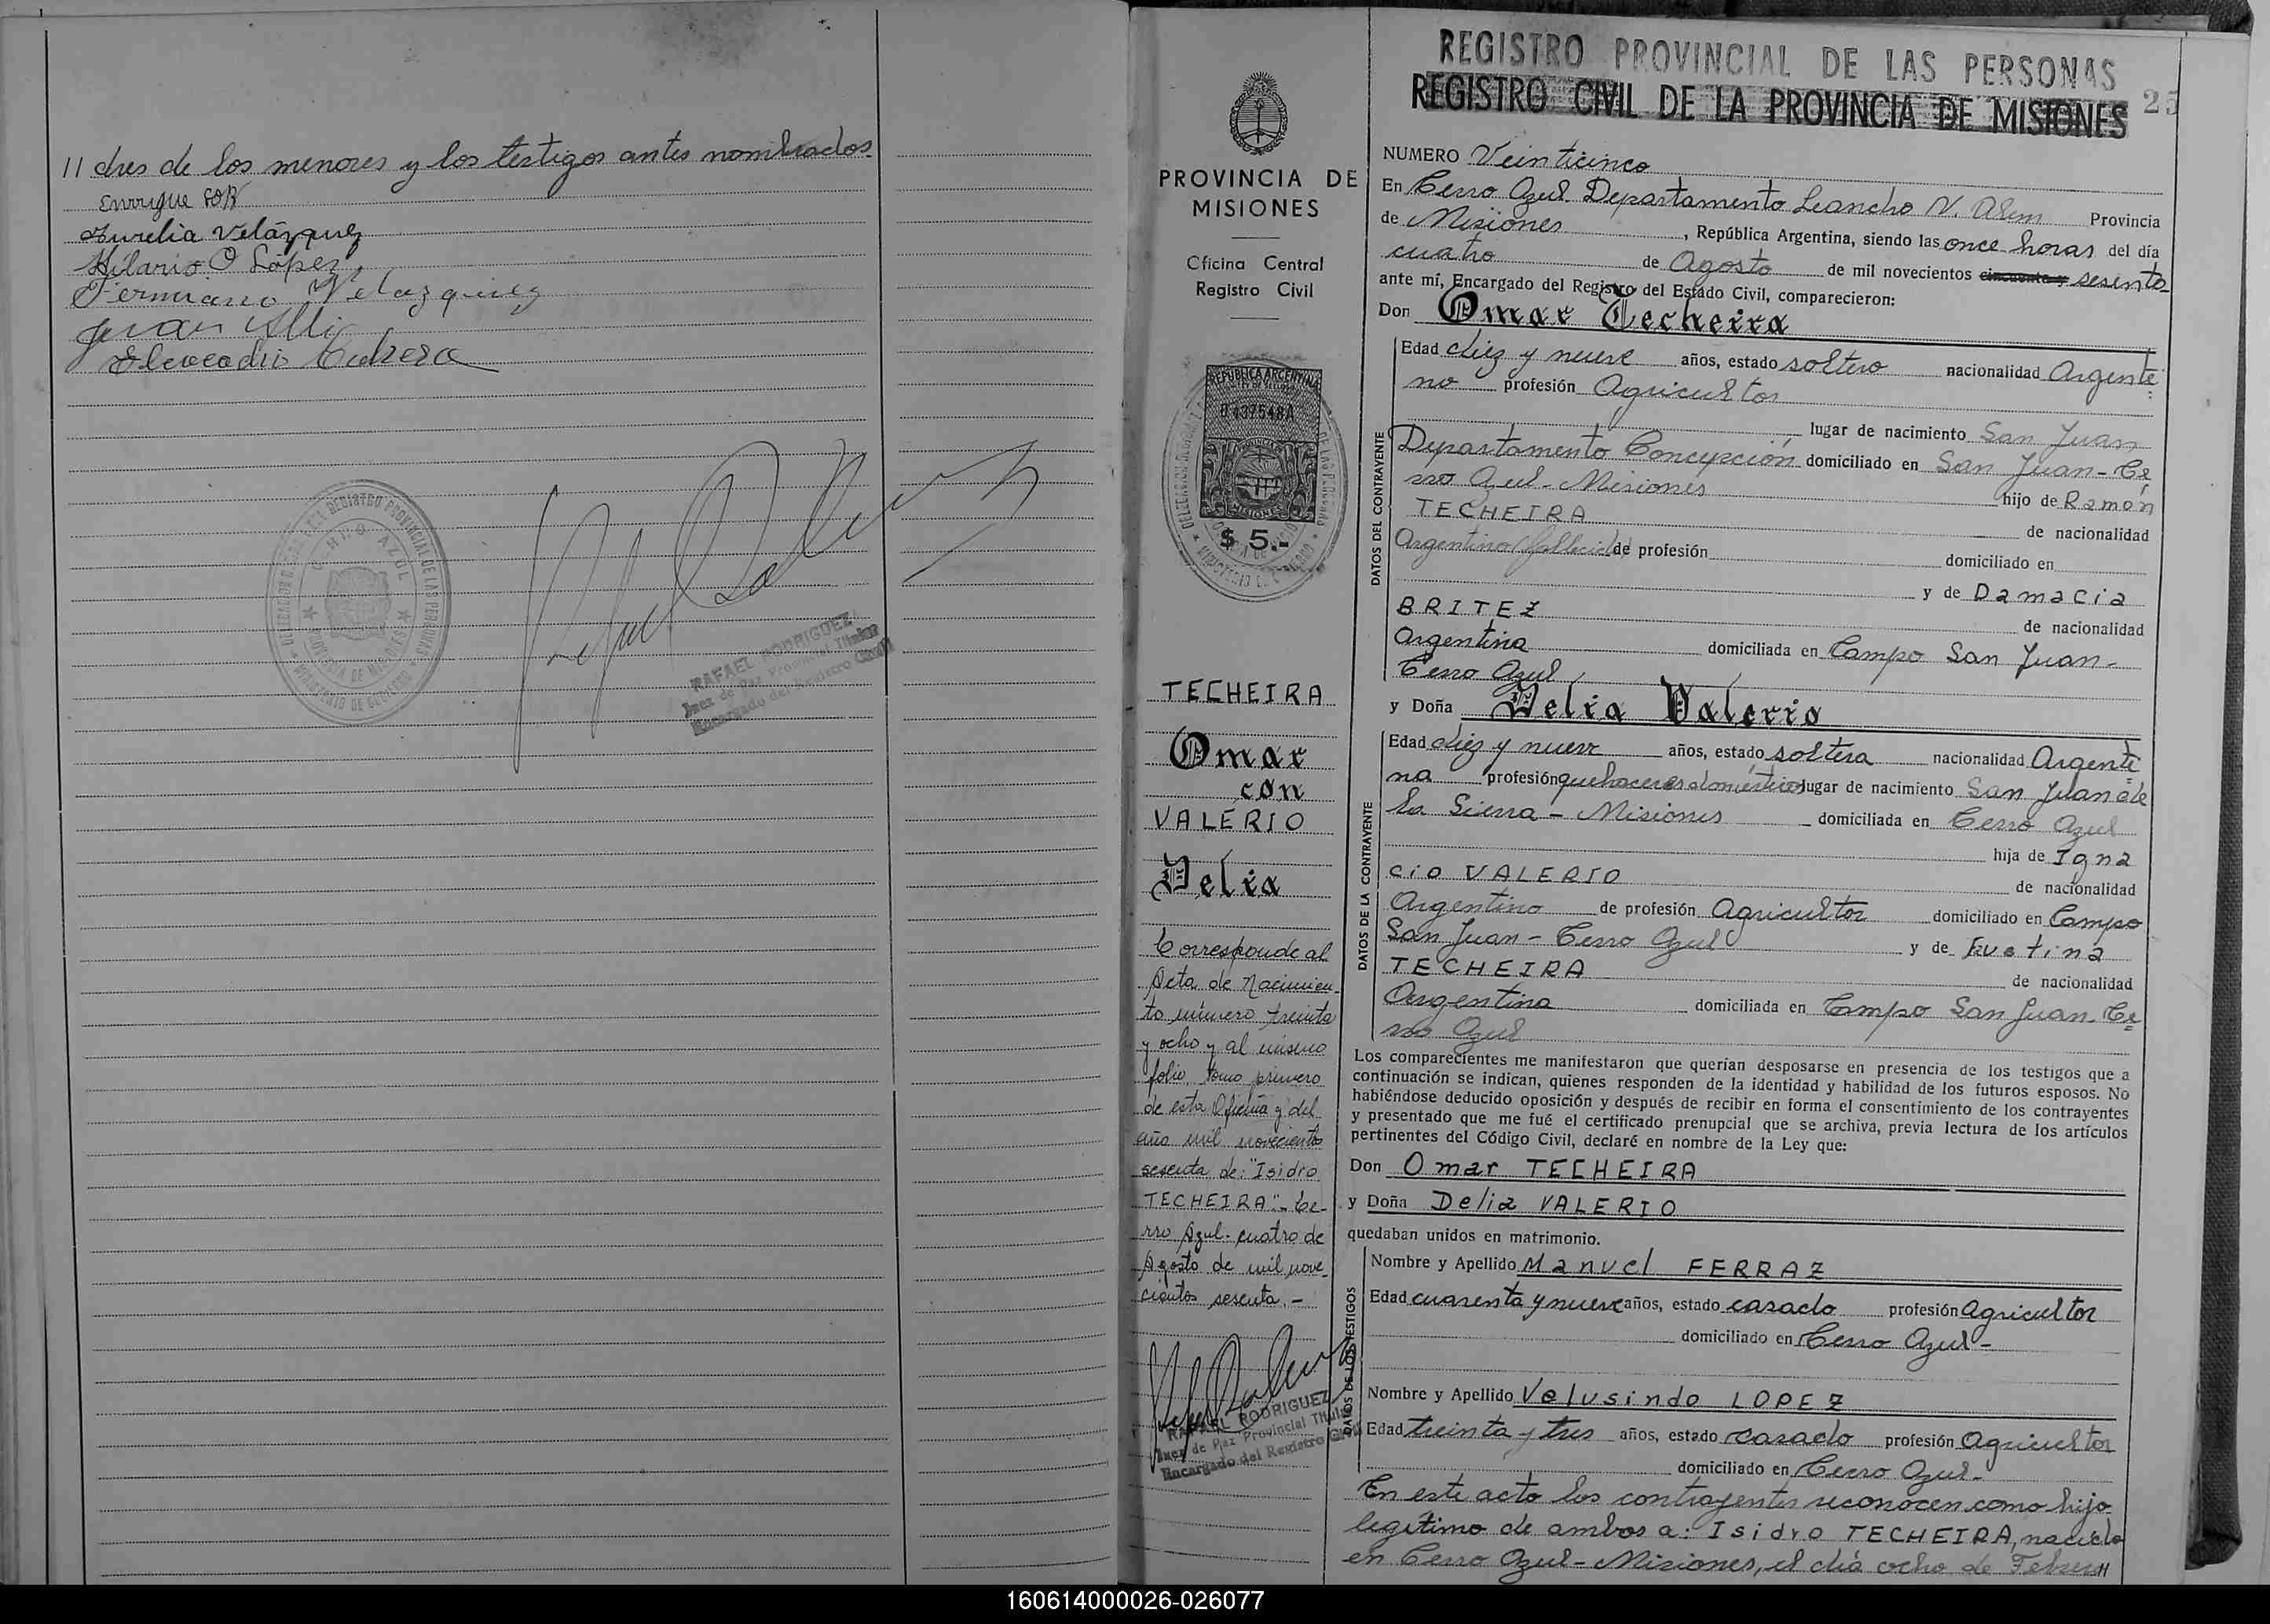 // dres de los menores y los testigos antes nombrados.
Enrrique SOR
Aurelia Velázquez
Hilario O López
Fermiano Velazquez
Juan Alli
Eleocadio Cabrera
RAFAEL RODRIGUEZ
Juez de Paz Provincial Titular
Encargado del Registro Civil
PROVINCIA DE
MISIONES
Oficina Central
Registro Civil
REPUBLICA ARGENTINA
0437548A
MISIONES
$ 5.-
TECHEIRA
Omar
con
VALERIO
Delia
Corresponde al
Acta de Nacimien-
to número treinta
y ocho y al mismo
folio, tomo primero
de esta Oficina y del
año mil novecientos
sesenta de: "Isidro
TECHEIRA".- Ce-
rro Azul- cuatro de
Agosto de mil nove-
cientos sesenta.-
RAFAEL RODRIGUEZ
Juez de Paz Provincial Titular
Encargado del Registro Civil
REGISTRO PROVINCIAL DE LAS PERSONAS
REGISTRO CIVIL DE LA PROVINCIA DE MISIONES
25
NUMERO Veinticinco
En Cerro Azul Departamento Leandro N. Alem Provincia
de Misiones, República Argentina, siendo las once horas del día
cuatro de Agosto de mil novecientos cincuenta y sesenta
ante mí, Encargado del Registro del Estado Civil, comparecieron:
Don Omar Techeira
DATOS DEL CONTRAYENTE
Edad diez y nueve años, estado soltero nacionalidad Argenti
no profesión Agricultor
lugar de nacimiento San Juan
Departamento Concepción domiciliado en San Juan - Ce
rro Azul - Misiones hijo de Ramón
TECHEIRA de nacionalidad
Argentino (fallecido) de profesión domiciliado en
y de Damacia
BRITEZ de nacionalidad
Argentina domiciliada en Campo San Juan-
Cerro Azul
y Doña Delia Valerio
DATOS DE LA CONTRAYENTE
Edad diez y nueve años, estado soltera nacionalidad Argenti
na profesión quehaceres domésticos lugar de nacimiento San Juan de
la Sierra - Misiones domiciliada en Cerro Azul
hija de Igna
cio VALERIO de nacionalidad
Argentino de profesión Agricultor domiciliado en Campo
San Juan - Cerro Azul y de Fustina
TECHEIRA de nacionalidad
Argentina domiciliada en Campo San Juan- Ce
rro Azul
Los comparecientes me manifestaron que querían desposarse en presencia de los testigos que a
continuación se indican, quienes responden de la identidad y habilidad de los futuros esposos. No
habiéndose deducido oposición y después de recibir en forma el consentimiento de los contrayentes
y presentado que me fué el certificado prenupcial que se archiva, previa lectura de los artículos
pertinentes del Código Civil, declaré en nombre de la Ley que:
Don Omar TECHEIRA
y Doña Delia VALERIO
quedaban unidos en matrimonio.
DATOS DE LOS TESTIGOS
Nombre y Apellido Manuel FERRAZ
Edad cuarenta y nueve años, estado casado profesión Agricultor
domiciliado en Cerro Azul-
Nombre y Apellido Velusindo LOPEZ
Edad treinta y tres años, estado casado profesión Agricultor
domiciliado en Cerro Azul-
En este acto los contrayentes reconocen como hijo
legítimo de ambos a: Isidro TECHEIRA, nacido
en Cerro Azul - Misiones, el día ocho de Febrero//
160614000026-026077